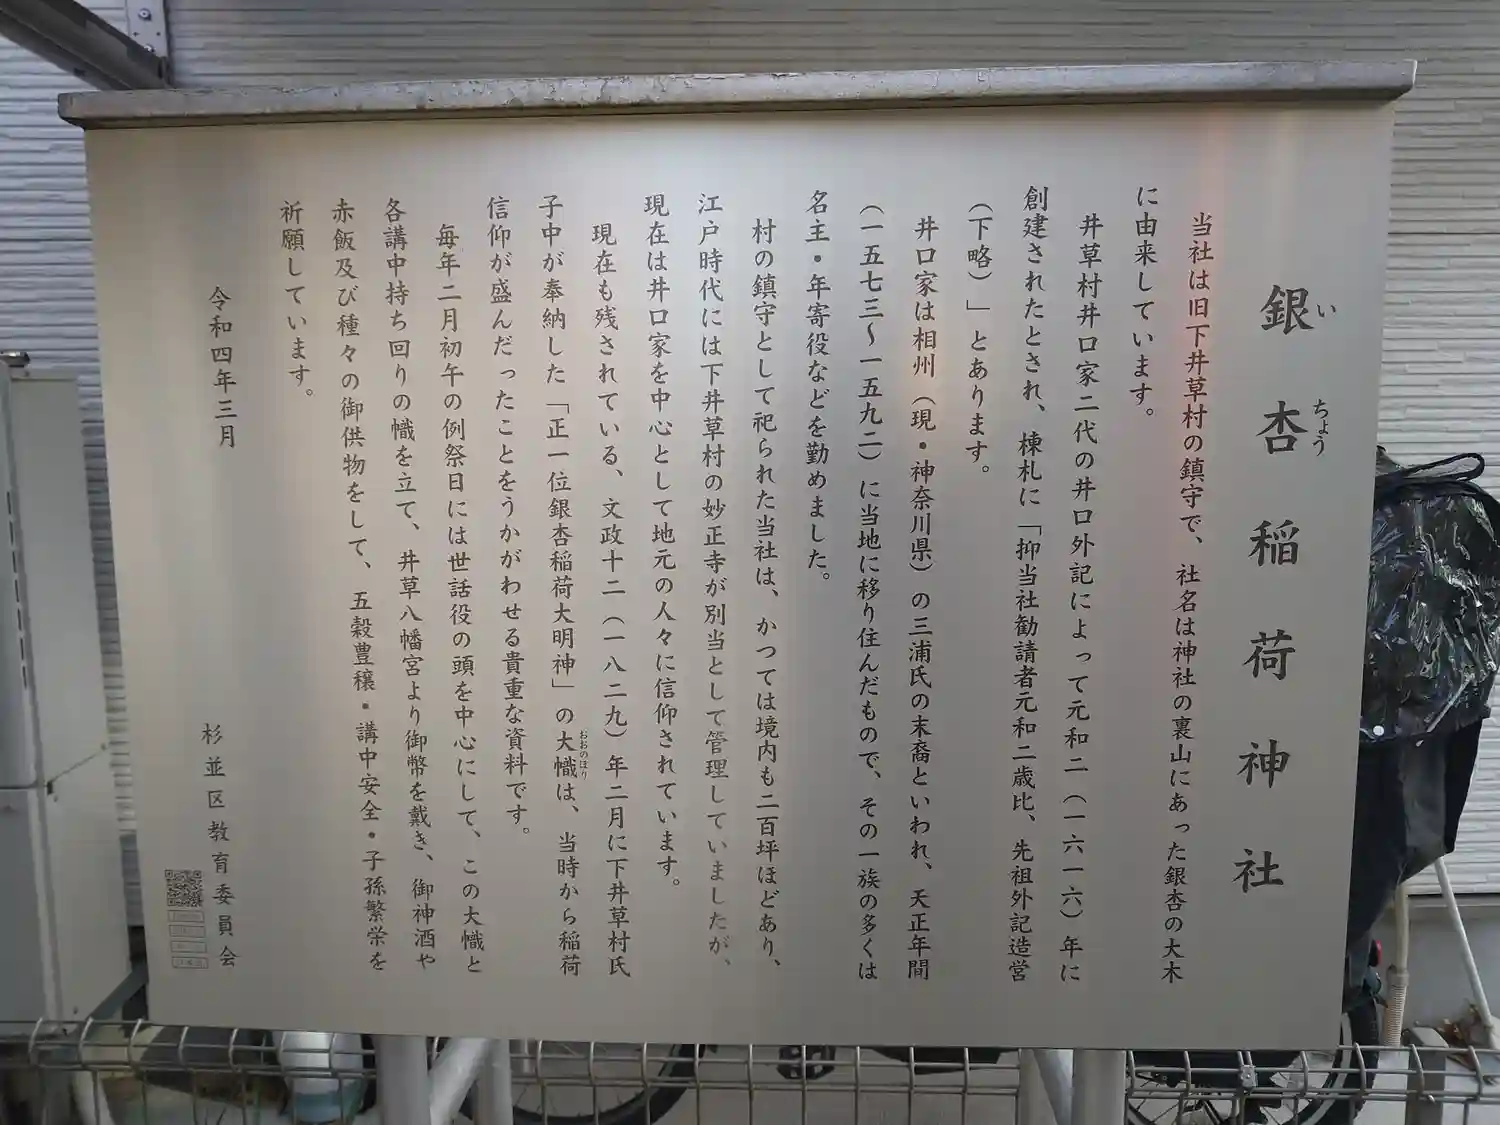 銀杏稲荷神社
いちょう
当社は旧下井草村の鎮守で、社名は神社の裏山にあった銀杏の大木
に由来しています。
井草村井口家二代の井口外記によって元和二（一六一六）年に
創建されたとされ、棟札に「抑当社勧請者元和二歳比、先祖外記造営
（下略）」とあります。
井口家は相州（現・神奈川県）の三浦氏の末裔といわれ、天正年間
（一五七三〜一五九二）に当地に移り住んだもので、その一族の多くは
名主・年寄役などを勤めました。
村の鎮守として祀られた当社は、かつては境内も二百坪ほどあり、
江戸時代には下井草村の妙正寺が別当として管理していましたが、
現在は井口家を中心として地元の人々に信仰されています。
現在も残されている、文政十二（一八二九）年二月に下井草村氏
子中が奉納した「正一位銀杏稲荷大明神」の大幟は、当時から稲荷
おおのぼり
信仰が盛んだったことをうかがわせる貴重な資料です。
毎年二月初午の例祭日には世話役の頭を中心にして、この大幟と
各講中持ち回りの幟を立て、井草八幡宮より御幣を戴き、御神酒や
赤飯及び種々の御供物をして、五穀豊穣・講中安全・子孫繁栄を
祈願しています。
令和四年三月
杉並区教育委員会